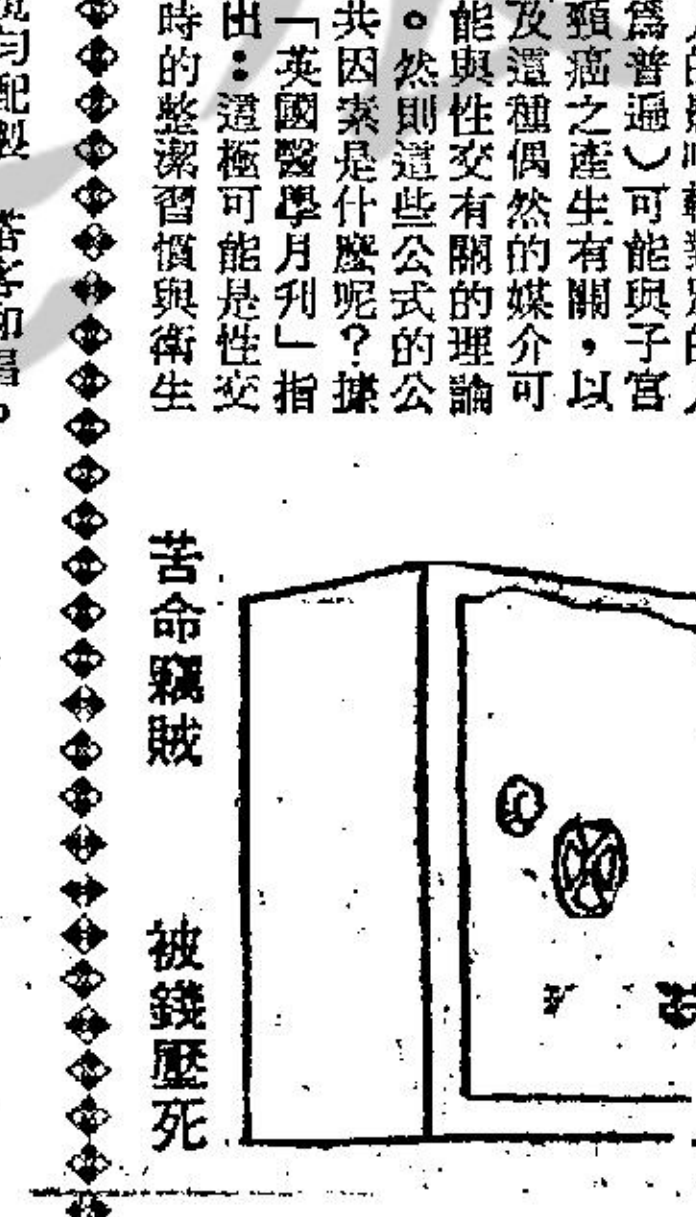 爲普遍）可能與子宮
頸癌之產生有關，以
及這種偶然的媒介可
能與性交有關的理論
。然則這些公式的公
共因素是什麼呢？據
「英國醫學月刋」指
出：這極可能是性交
時的整潔習慣與衛生
苦命竊賊
被錢壓死